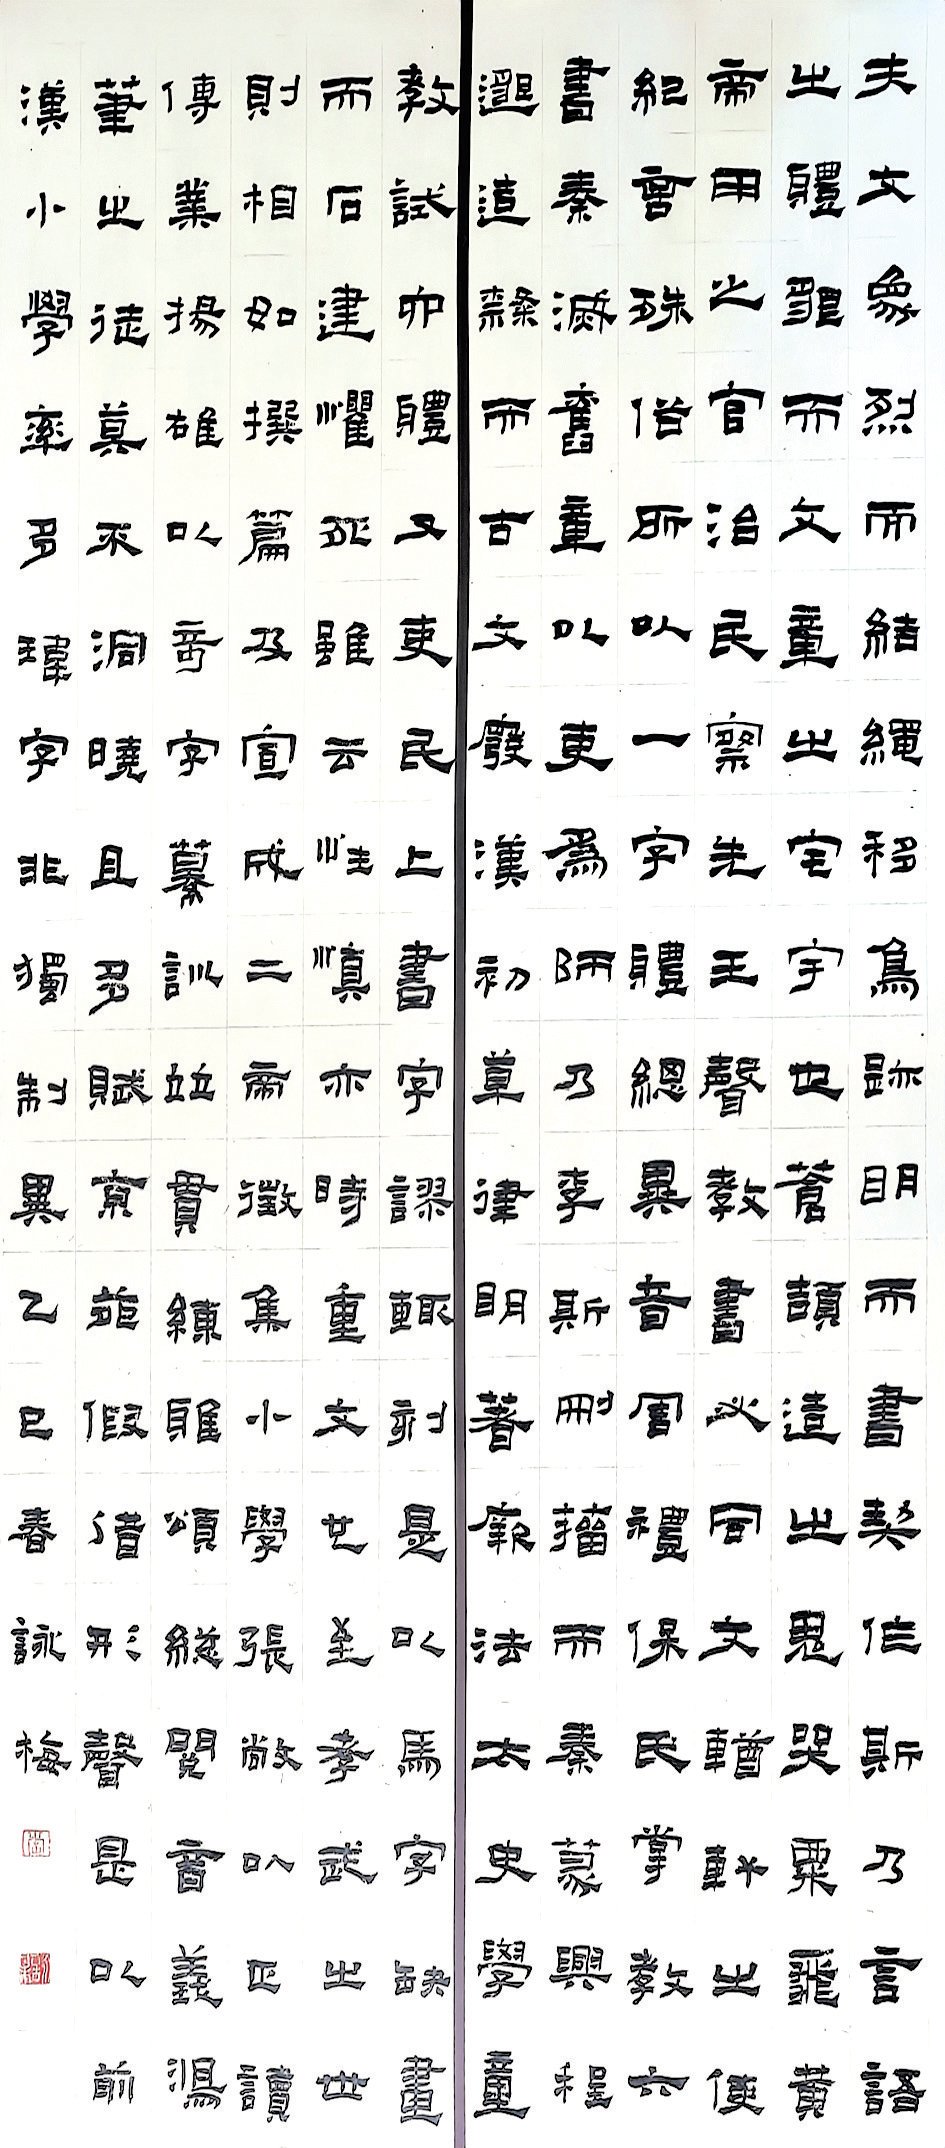 夫文象烈而結繩移鳥跡明而書契作斯乃言語
之體貌而文章之宅宇也蒼頡造之鬼哭粟飛黃
帝用之官治民察先王聲教書必同文輶軒之使
紀言殊俗所以一字體總異音周禮保氏掌教六
書秦滅舊章以吏為師乃李斯刪籀而秦篆興程
邈造隸而古文廢漢初草律明著厥法太史學童
教試六體又吏民上書字謬輒劾是以馬字缺畫
而石建懼死雖云性慎亦時重文也至孝武之世
則相如撰篇及宣成二帝徵集小學張敞以正讀
傳業揚雄以奇字纂訓並貫練雅頌總閱音義鴻
筆之徒莫不洞曉且多賦京苑假借形聲是以前
漢小學率多瑋字非獨制異乙巳春詠梅